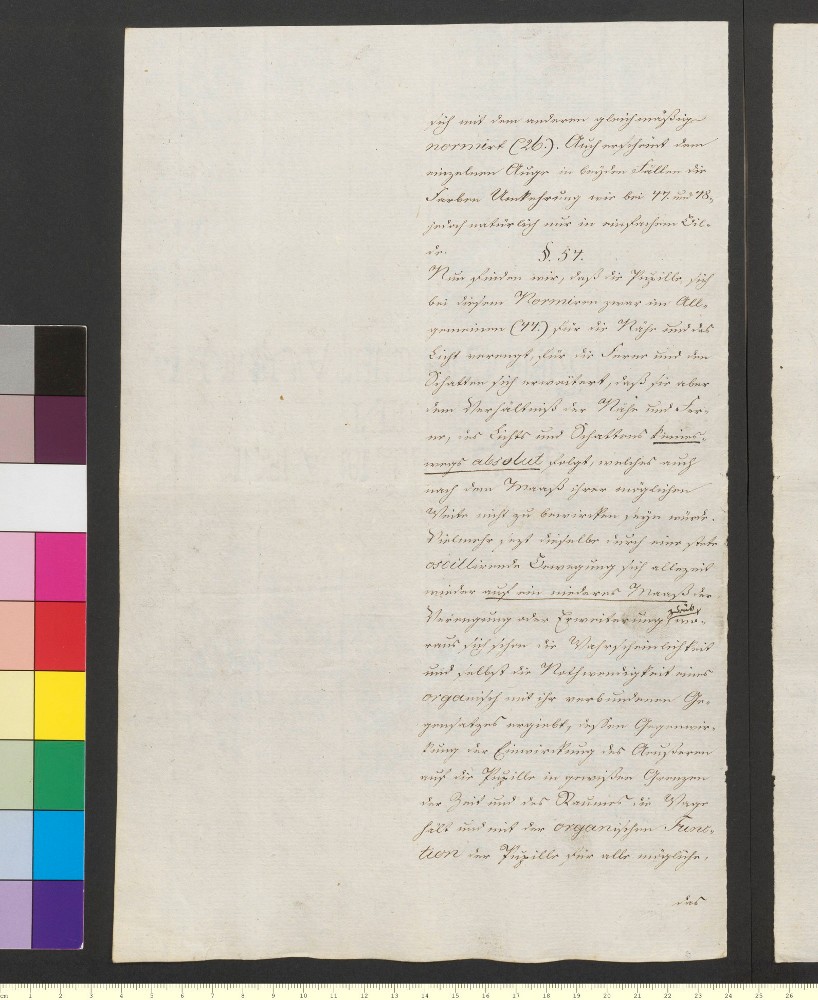 sich mit dem anderen gleichmäßig
normirt (26.). Auch erscheint dem
einzelnen Auge in beyden Fällen die
Farben Umkehrung wie bei 47. und 48.
jedoch natürlich nur in einfachem Bil-
de.
§. 54.
Nun finden wir, daß die Pupille sich
bei diesem Normiren zwar im All-
gemeinen (44.) für die Nähe und das
Licht verengt, für die Ferne und den
Schatten sich erweitert, daß sie aber
dem Verhältniß der Nähe und Fer-
ne, des Lichts und Schattens keines-
wegs absolut folgt, welches auch
nach dem Maaß ihrer möglichen
Weite nicht zu bewircken seyn würde.
Vielmehr sezt dieselbe durch eine stete
oscillirende Bewegung sich allezeit
wieder auf ein niederes Maaß der
Verengung oder Erweiterung zurük, wo-
raus sich schon die Wahrscheinlichkeit
und selbst die Nothwendigkeit eines
organisch mit ihr verbundenen Ge-
gensatzes ergiebt, dessen Gegenwir-
kung der Einwirkung des Aeußeren
auf die Pupille in gewißen Grenzen
der Zeit und des Raumes die Wage
hält und mit der organischen Func-
tion der Pupille für alle mögliche,
das